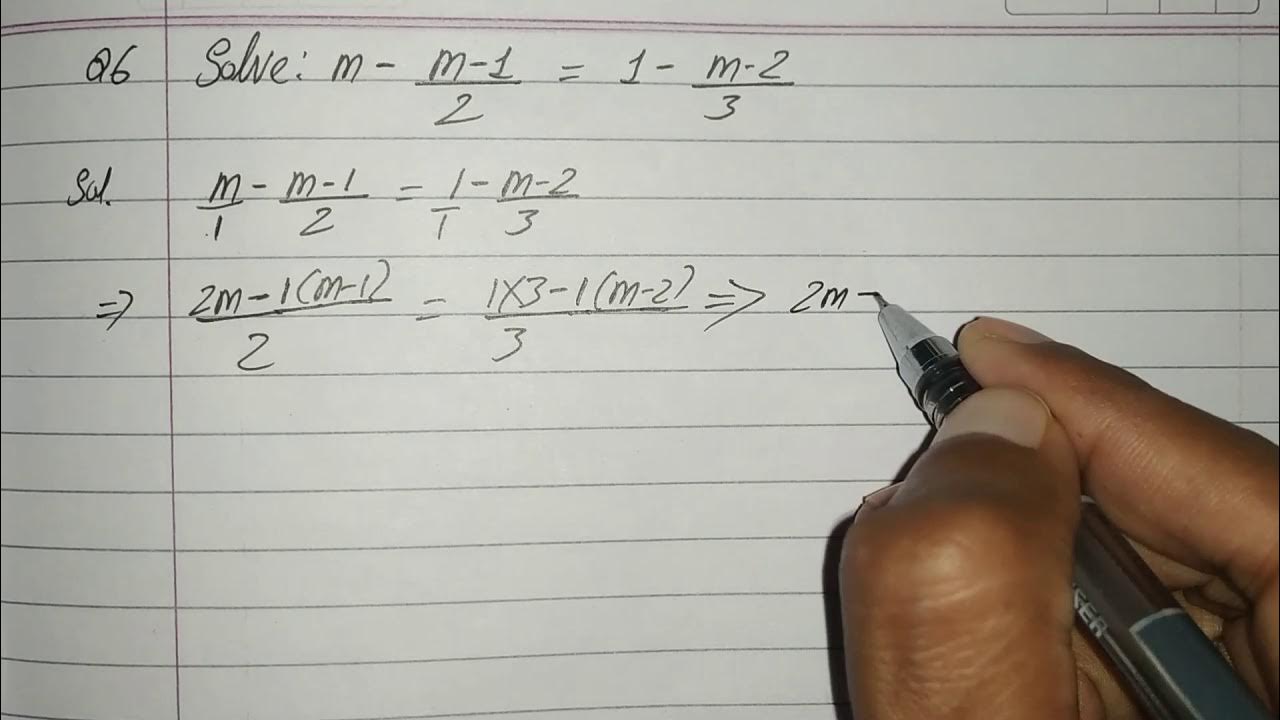 Q6 Solve: m - m-1/2 = 1 - m-2/3
Sol. m/1 - m-1/2 = 1/1 - m-2/3
⇒ 2m-1(m-1)/2 = 1×3-1(m-2)/3 ⇒ 2m -
GER